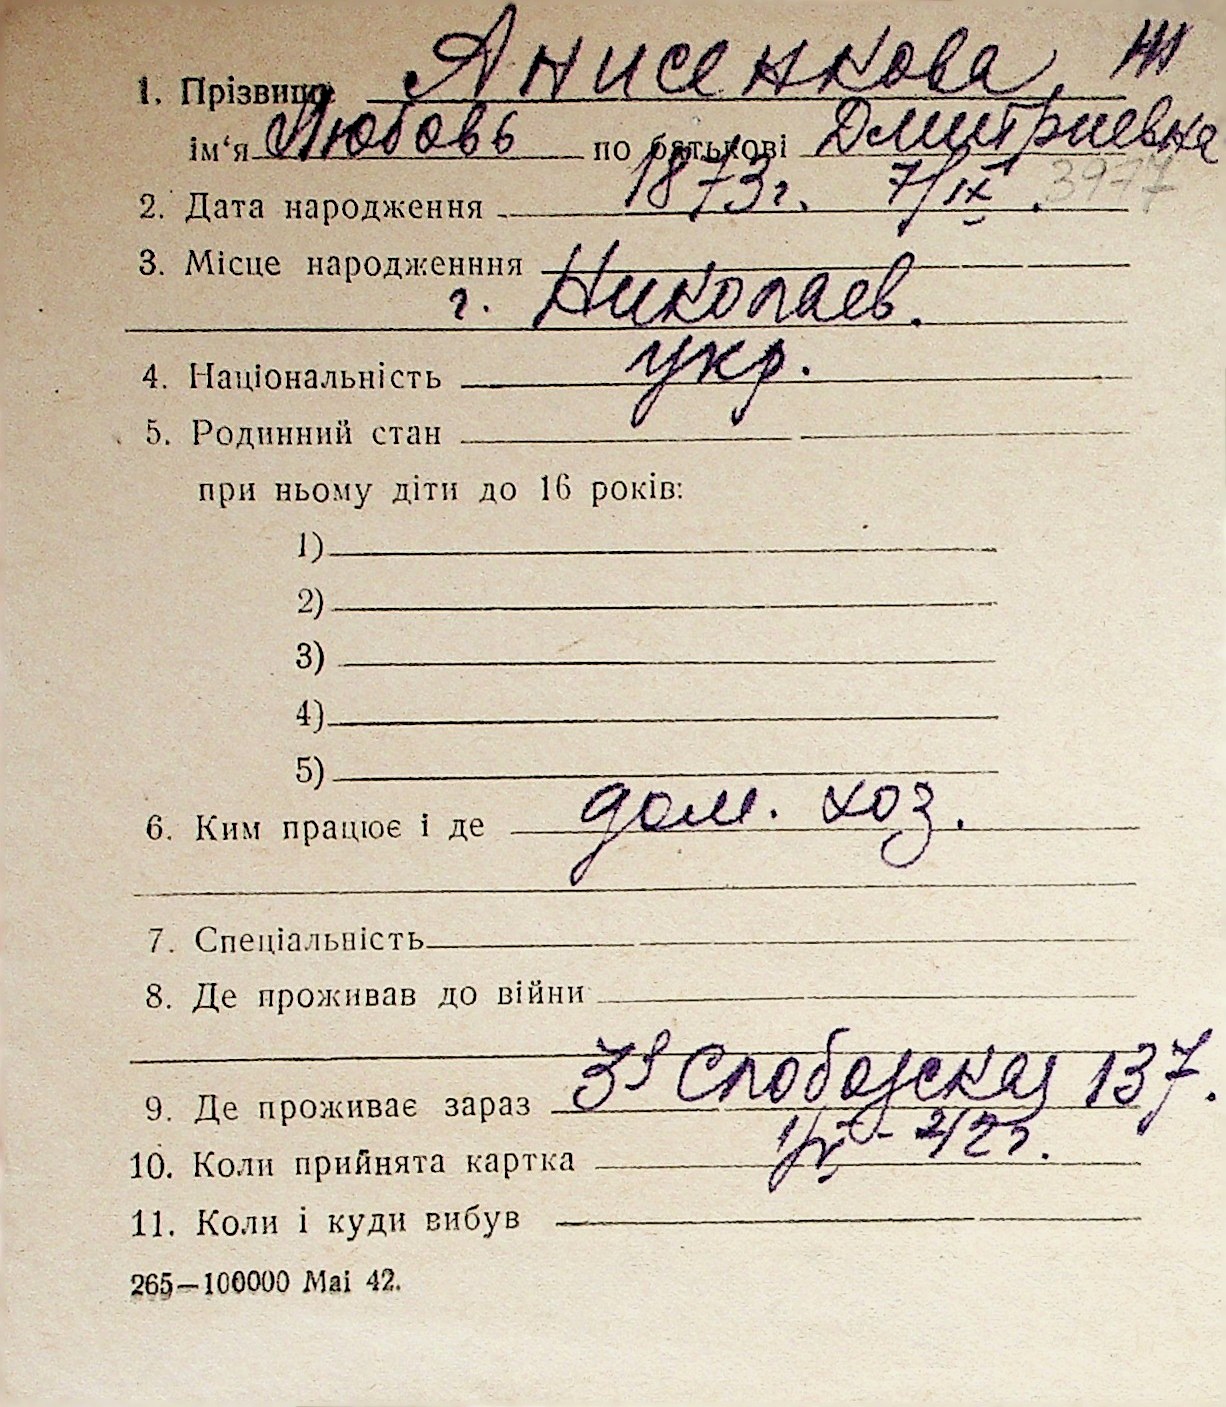 1. Прізвище Анисенкова Ж
ім‘я Любовь по батькові Дмитриевна
2. Дата народження 1873г. 7/IX. 3977
3. Місце народженння
г. Николаев.
4. Національність укр.
5. Родинний стан
при ньому діти до 16 років:
1)
2)
3)
4)
5)
6. Ким працює і де дом. хоз.
7. Спеціальність
8. Де проживав до війни
9. Де проживає зараз 3я Слободская 137.
10. Коли прийнята картка 42г.
11. Коли і куди вибув
265—100000 Mai 42.